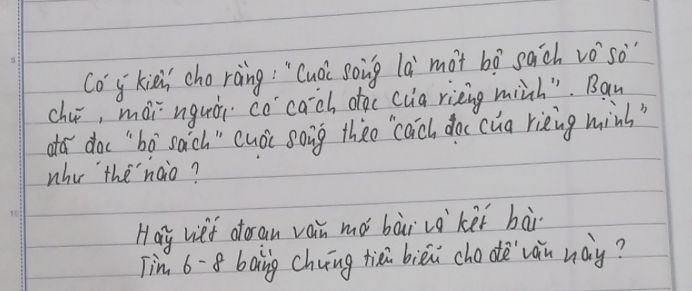 Có ý kiến cho rằng: "Cuộc sống là một bộ sách vô số
chữ, mỗi người có cách đọc của riêng mình". Bạn
đã đọc "bộ sách" cuộc sống theo "cách đọc của riêng mình"
như thế nào?
Hãy viết đoạn văn mở bài và kết bài.
Tìm 6-8 bằng chứng tiêu biểu cho đề văn này?